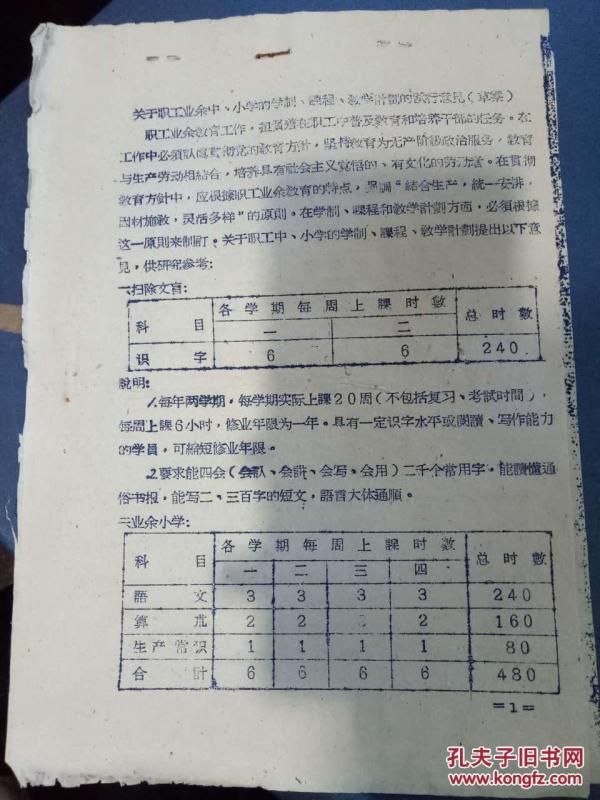 关于职工业余中、小学的学制、課程、教学計劃的试行意见(草案)
职工业余教育工作,担負着在职工中普及教育和培养干部的任务。在
工作中必須认眞貫彻党的教育方針,坚持教育为无产阶級政治服务,教育
与生产劳动相結合,培养具有社会主义覚悟的、有文化的劳动者。在貫彻
教育方針中,应根据职工业余教育的特点,强調“結合生产,統一安排,
因材施教,灵活多样”的原則。在学制、課程和教学計劃方面,必須根据
这一原則来制訂。关于职工中、小学的学制、課程、教学計劃提出以下意
見,供研究参考:
一扫除文盲:
科 目 各学期每周上課时数 总时数
一 二
识 字 6 6 240
說明:
1.每年两学期,每学期实际上課20周(不包括复习、考試时間),
每周上課6小时,修业年限为一年。具有一定识字水平或閱讀、写作能力
的学員,可縮短修业年限。
2.要求能四会(会认、会講、会写、会用)二千个常用字,能讀懂通
俗书报,能写二、三百字的短文,語言大体通順。
二业余小学:
科 目 各学期每周上課时数 总时数
一 二 三 四
語 文 3 3 3 3 240
算 朮 2 2 2 160
生产常识 1 1 1 1 80
合 計 6 6 6 6 480
=1=
孔夫子旧书网
www.kongfz.com